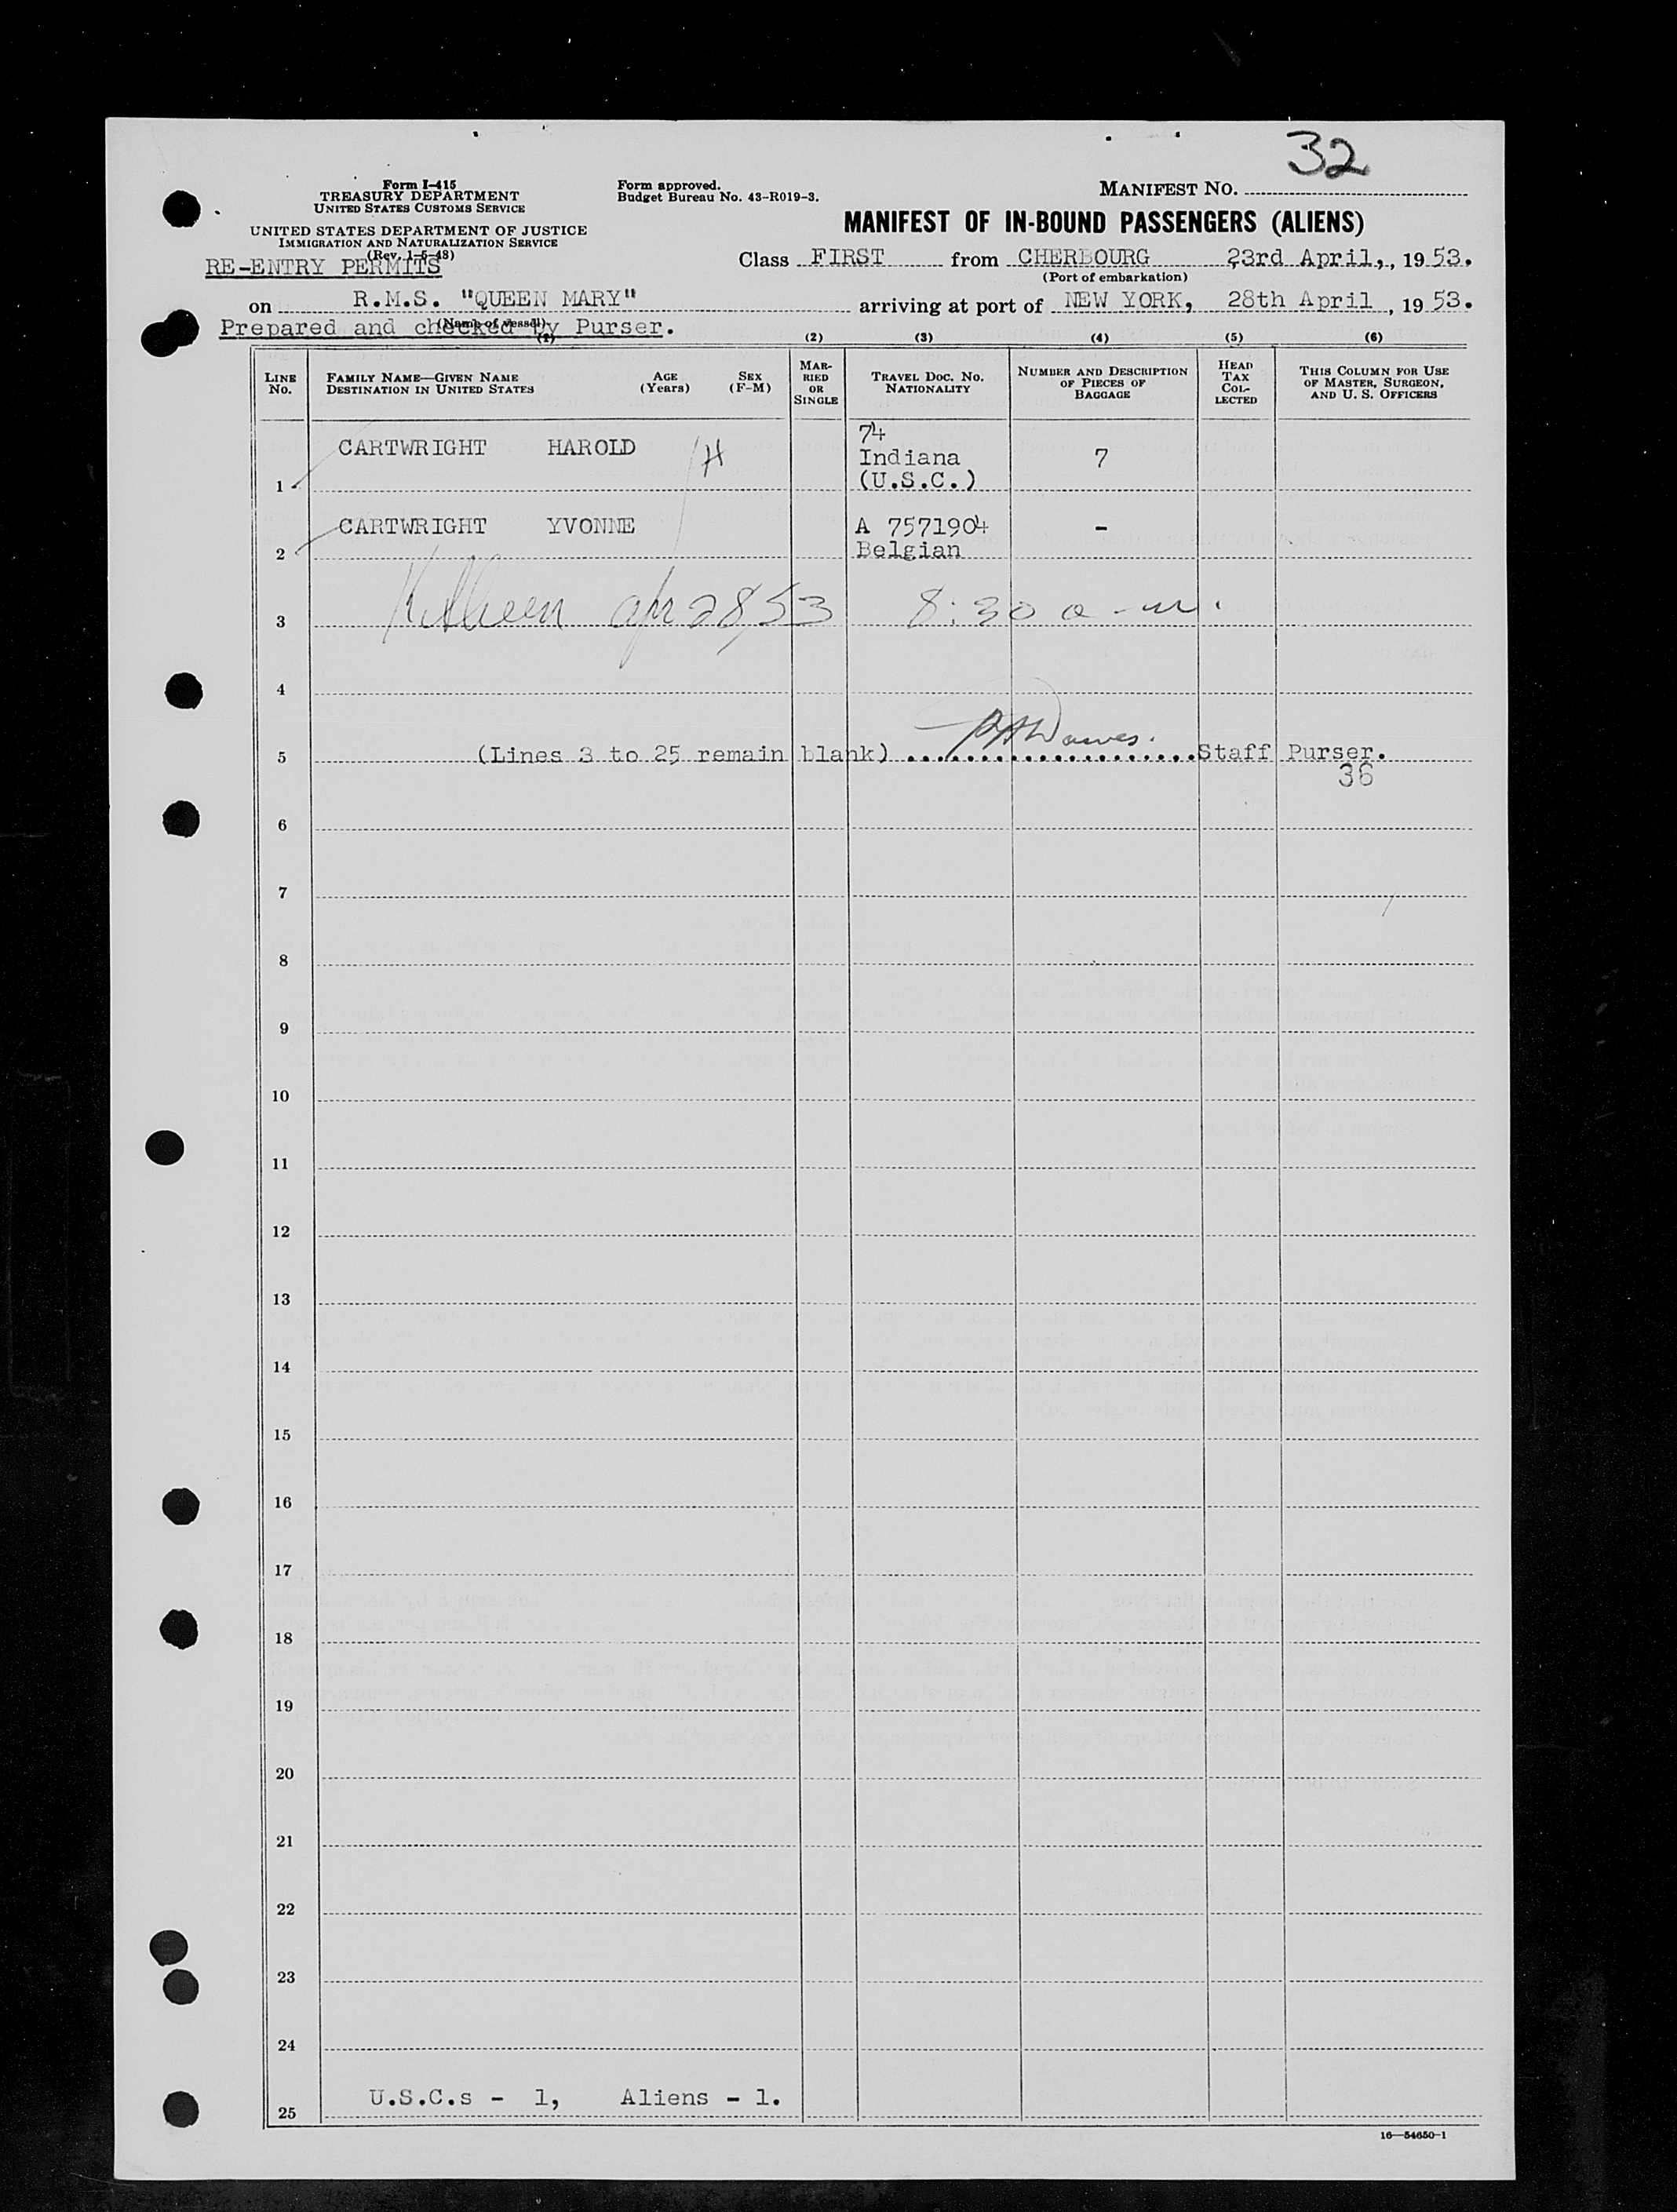 32
Form I-415
TREASURY DEPARTMENT
UNITED STATES CUSTOMS SERVICE
UNITED STATES DEPARTMENT OF JUSTICE
IMMIGRATION AND NATURALIZATION SERVICE
(Rev. 1-5-48)
RE-ENTRY PERMITS
Form approved.
Budget Bureau No. 43-R019-3.
MANIFEST NO.
MANIFEST OF IN-BOUND PASSENGERS (ALIENS)
Class FIRST from CHERBOURG 23rd April, , 19 53.
(Port of embarkation)
on R.M.S. "QUEEN MARY" arriving at port of NEW YORK, 28th April , 19 53.
(Name of vessel)
Prepared and checked by Purser.
(1) (2) (3) (4) (5) (6)
LINE No. FAMILY NAME—GIVEN NAME DESTINATION IN UNITED STATES AGE (Years) SEX (F-M) MARRIED OR SINGLE TRAVEL DOC. NO. NATIONALITY NUMBER AND DESCRIPTION OF PIECES OF BAGGAGE HEAD TAX COLLECTED THIS COLUMN FOR USE OF MASTER, SURGEON, AND U. S. OFFICERS
1 CARTWRIGHT HAROLD H 74 Indiana (U.S.C.) 7
2 CARTWRIGHT YVONNE A 7571904 Belgian -
3 apr 28, 53 8:30 a-m.
4
5 (Lines 3 to 25 remain blank) Staff Purser.
36
6
7
8
9
10
11
12
13
14
15
16
17
18
19
20
21
22
23
24
25 U.S.C.s - 1, Aliens - 1.
16—54650-1